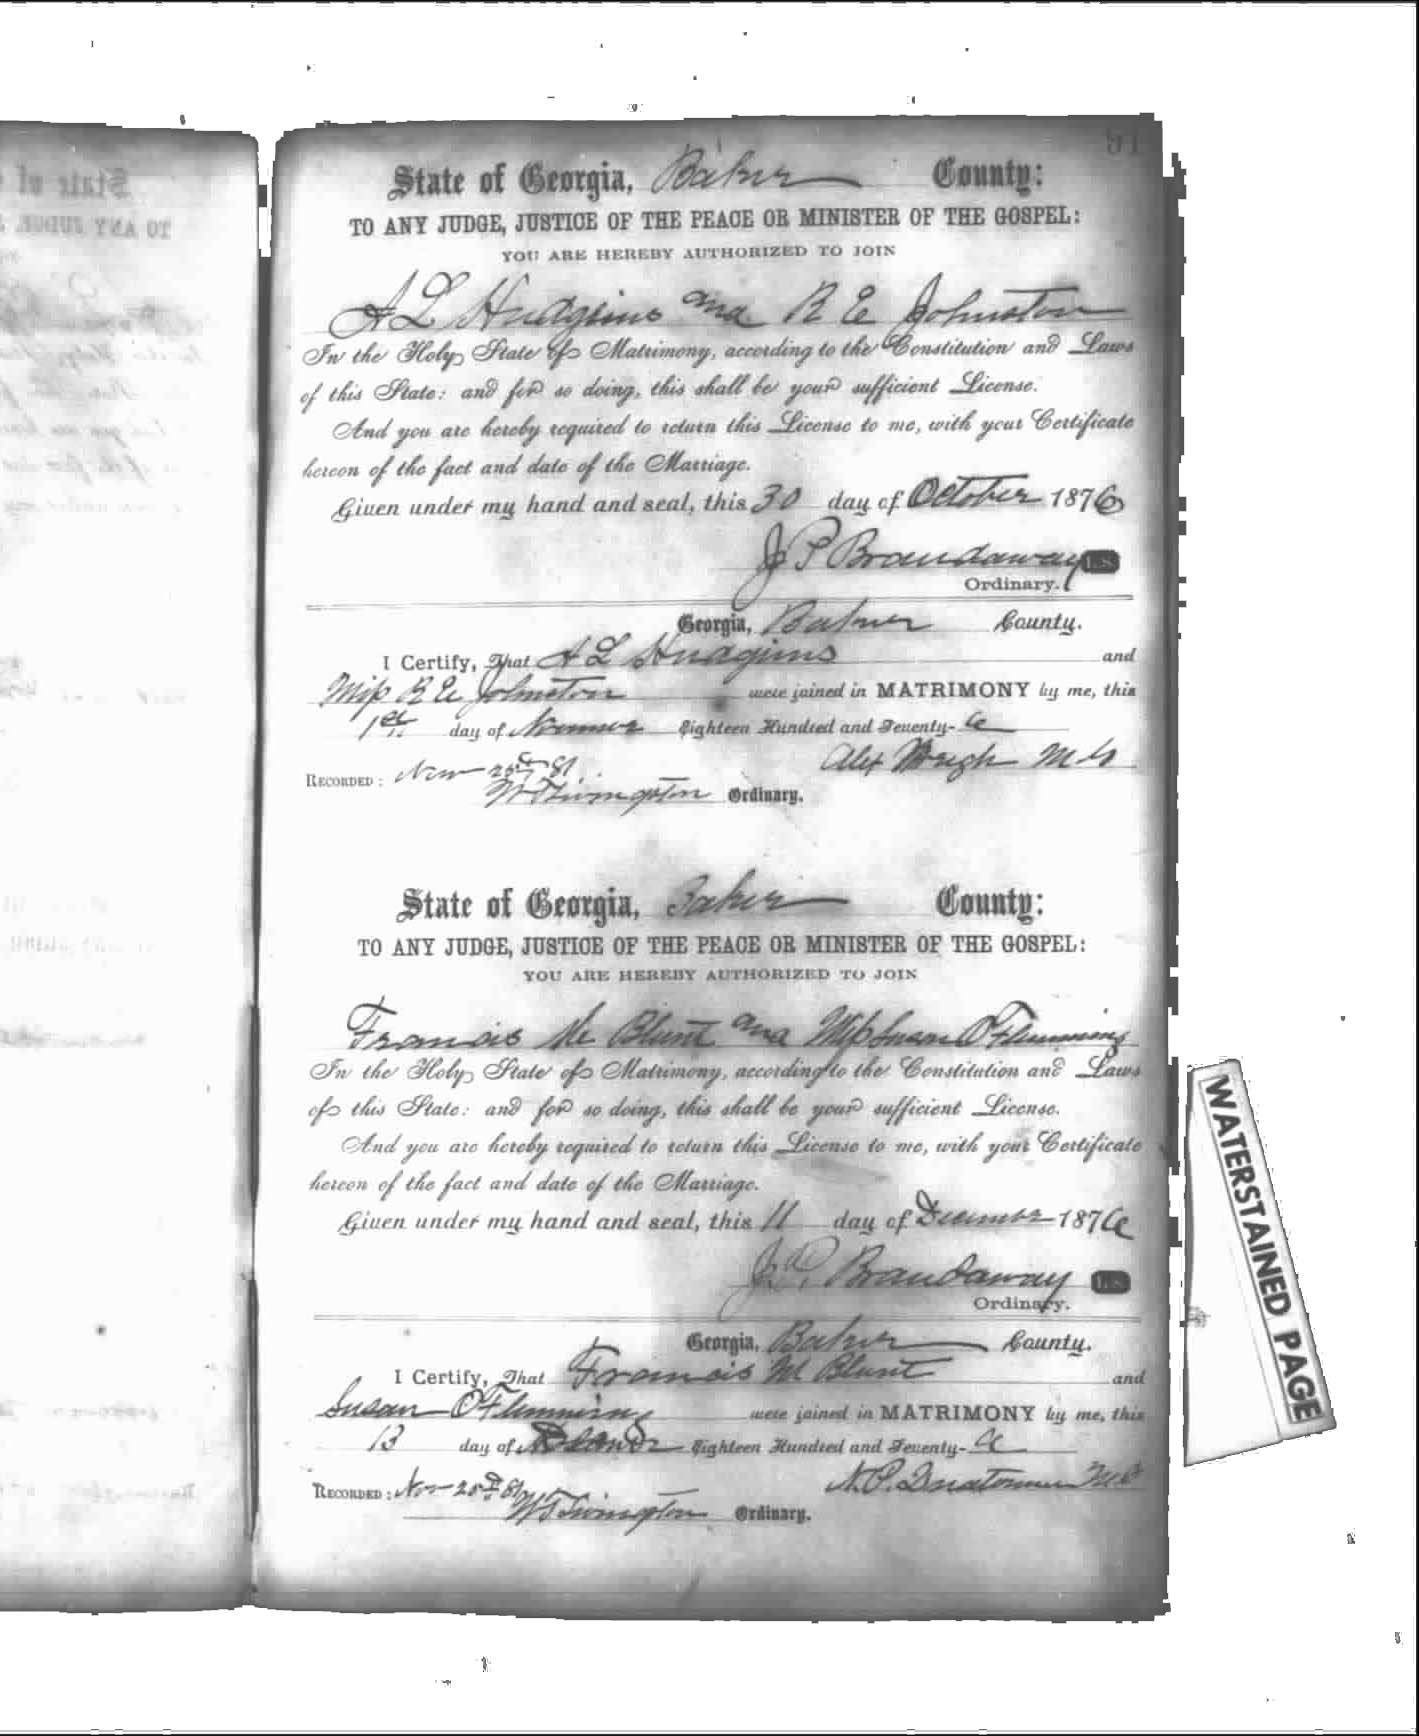 91
State of Georgia, Baker County:
TO ANY JUDGE, JUSTICE OF THE PEACE OR MINISTER OF THE GOSPEL:
YOU ARE HEREBY AUTHORIZED TO JOIN
A L Hudgins and R E Johnston
In the Holy State of Matrimony, according to the Constitution and Laws
of this State: and for so doing, this shall be your sufficient License.
And you are hereby required to return this License to me, with your Certificate
hereon of the fact and date of the Marriage.
Given under my hand and seal, this 30 day of October 1876
J P Brandaway L.S.
Ordinary.
Georgia, Baker County.
I Certify, That A L Hudgins and
Miss R E Johnston were joined in MATRIMONY by me, this
1st day of Eighteen Hundred and Seventy-6
Alex M G
RECORDED: Nov 25th 81
W T Livingston Ordinary.
State of Georgia, Baker County:
TO ANY JUDGE, JUSTICE OF THE PEACE OR MINISTER OF THE GOSPEL:
YOU ARE HEREBY AUTHORIZED TO JOIN
Francis M Blunt and Miss Susan O Flemming
In the Holy State of Matrimony, according to the Constitution and Laws
of this State: and for so doing, this shall be your sufficient License.
And you are hereby required to return this License to me, with your Certificate
hereon of the fact and date of the Marriage.
Given under my hand and seal, this 11 day of December 1876
J. P. Brandaway L.S.
Ordinary.
Georgia, Baker County.
I Certify, That Francis M Blunt and
Susan O Flemming were joined in MATRIMONY by me, this
13 day of Eighteen Hundred and Seventy-6
RECORDED: Nov 25th 81
W T Livingston Ordinary.
WATERSTAINED PAGE